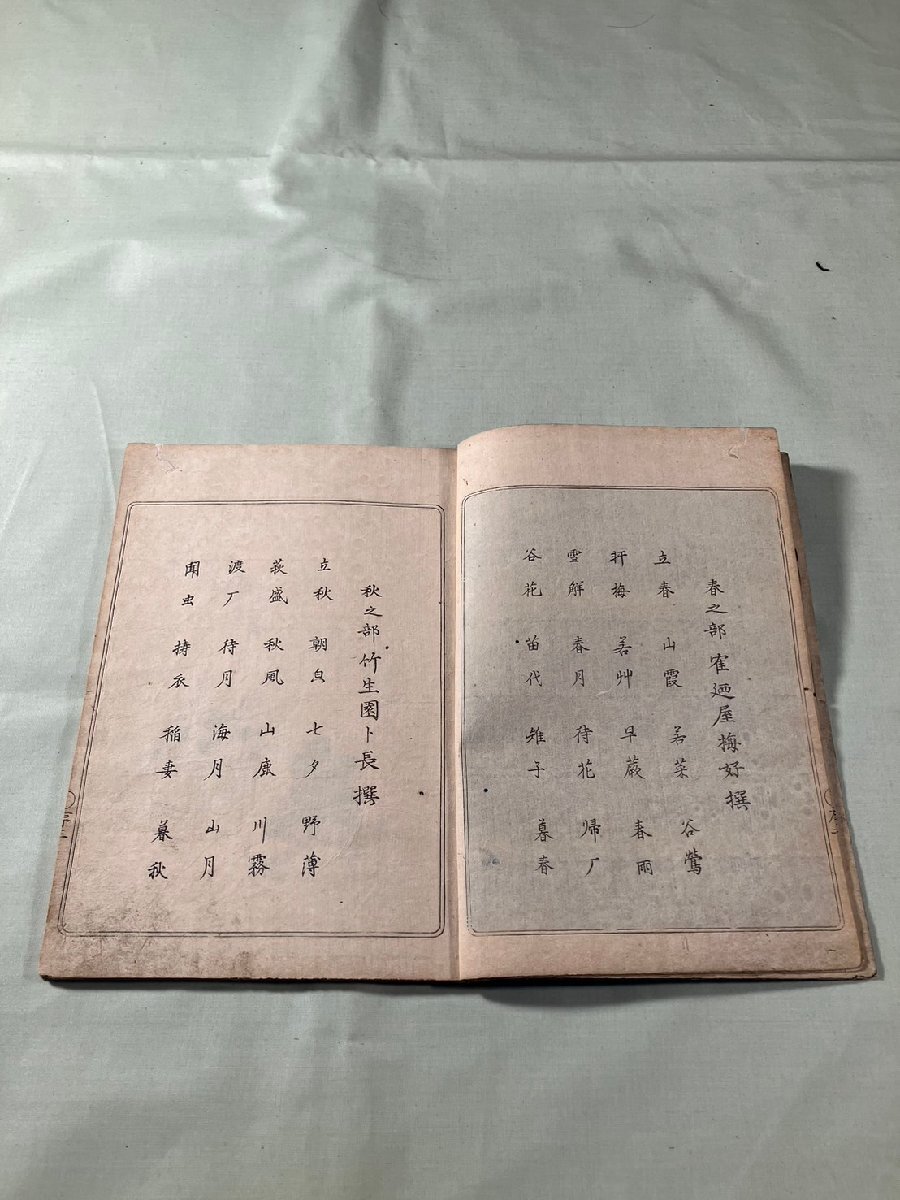 春之部 隺廼屋梅好撰
立春 山霞 若菜 谷鶯
軒梅 若艸 早蕨 春雨
雪解 春月 待花 帰厂
谷花 苗代 雉子 暮春
秋之部 竹生園卜長撰
立秋 朝㒵 七夕 野薄
萩盛 秋風 山鹿 川霧
渡厂 待月 海月 山月
聞虫 擣衣 稲妻 暮秋